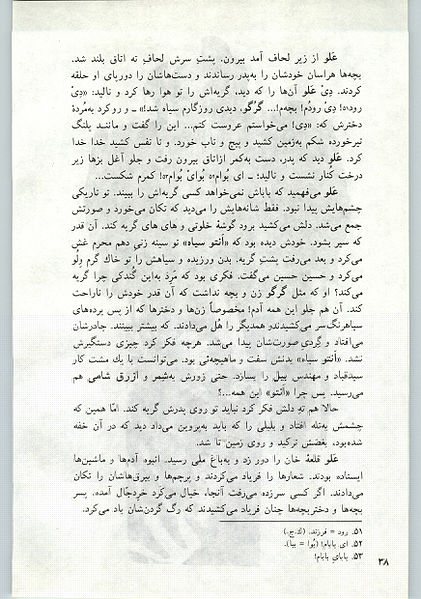 عَلو از زیر لحاف آمد بیرون. پشتِ سرش لحافِ ته اتاق بلند شد.
بچه‌ها هراسان خودشان را به‌پدر رساندند و دست‌هاشان را دورپای او حلقه
کردند. دِیْ عَلو آن‌ها را که دید، گریه‌اش را تو هوا رها کرد و نالید: «دِیْ
رود۵۱! دِیْ رودُم! بچه‌م!... گُرگُو، دیدی روزگارم سیاه شد!» ـ و روکرد به‌مُردهٔ
دخترش که: «دِی! می‌خواستم عروست کنم... این را گفت و ماننـد پلنگ
تیرخورده شکم به‌زمین کشید و پیچ و تاب خورد. و تا نفس کشید خدا خدا
کرد. عَلو دید که پدر، دست به‌کمر ازاتاق بیرون رفت و جلو آغل بزها زیر
درخت کُنار نشست و نالید: ـ ای بُوام۵۲ بُوایْ بُوام۵۳! کمرم شکست...
عَلو می‌فهمید که باباش نمی‌خواهد کسی گریه‌اش را ببیند. تو تاریکی
چشم‌هایش پیدا نبود. فقط شانه‌هایش را می‌دید که تکان می‌خورد و صورتش
جمع می‌شد. دلش می‌کشید برود گوشهٔ خلوتی و های های گریه کند. آن قدر
که سیر بشود. خودش دیده بود که «اَنتو سیاه» تو سینه زنی دهم محرم غش
می‌کرد و بعد می‌رفت پشتِ گریه. بدن ورزیده و سیاهش را تو خاك گرم وِلُو
می‌کرد و حسین حسین می‌گفت. فکری بود که مَرد به‌این گُندکی چرا گریه
می‌کند؟ او که مثل گرگو زن و بچه نداشت که آن قدر خودش را ناراحت
کند. آن هم جلو این همه آدم! مخصوصاً زن‌ها و دخترها که از پس برده‌های
سیاهرنگ‌سر می‌کشیدندو همدیگر را هُل می‌دادند. که بیشتر ببینند. چادرشان
می‌افتاد و گِردی صورت‌شان پیدا می‌شد. هرچه فکر کرد چیزی دستگیرش
نشد. «اَنتو سیاه» بدنش سفت و ماهیچه‌ئی بود. می‌توانست با یك مشت کار
سیدقباد و مهندس بیل را بسازد. حتی زورش به‌شِمر و ازرق شامی هم
می‌رسید. پس چرا «اَنتو» این همه...؟
حالا هم ته دلش فکر کرد نباید تو روی پدرش گریه کند. امّا همین که
چشمش به‌تله افتاد و بلبلی را که باید به‌پروین می‌داد دید که در آن خفه
شده‌بود، بغضش ترکید و روی زمین تا شد.
عَلو قلعهٔ خان را دور زد و به‌باغ ملی رسید. انبوه آدم‌ها و ماشین‌ها
ایستاده بودند. شعارها را فریاد می‌کردند و پرچم‌ها و بیرق‌هاشان را تکان
می‌دادند. اگر کسی سرزده می‌رفت آنجا، خیال می‌کرد خردجّال آمده. پسر
بچه‌ها و دختربچه‌ها چنان فریاد می‌کشیدند که رگ گردن‌شان باد می‌کرد.
۵۱. رود = فرزند. (ك.ج.)
۵۲. ای بابام! (بُوا = بیا).
۵۳. بابای بابام!
۳۸